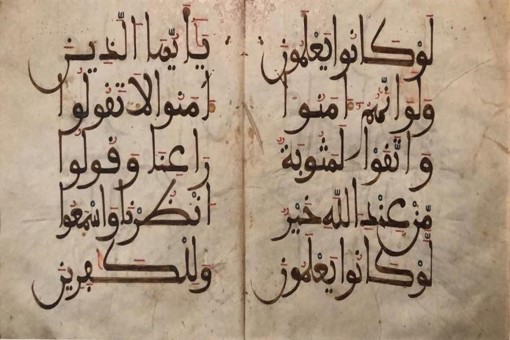 لَوْ كَانُوا يَعْلَمُونَ
وَلَوَ انَّهُمُ ءَامَنُوا
وَاتَّقَوْا لَمَثُوبَةٌ
مِّنْ عِندِ اللَّهِ خَيْرٌ
لَّوْ كَانُوا يَعْلَمُونَ
يَأَيُّهَا الَّذِينَ
ءَامَنُوا لَا تَقُولُوا
رَاعِنَا وَقُولُوا
انظُرْنَا وَاسْمَعُوا
وَلِلْكَفِرِينَ